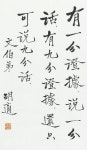 有一分證據說一分
話有九分證據還只
可說九分話
文伯弟
胡適